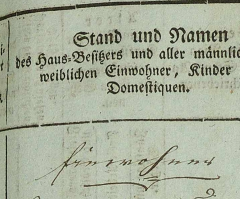 Stand und Namen
des Haus-Besitzers und aller männlic
weiblichen Einwohner, Kinder
Domestiquen.
Einwohner